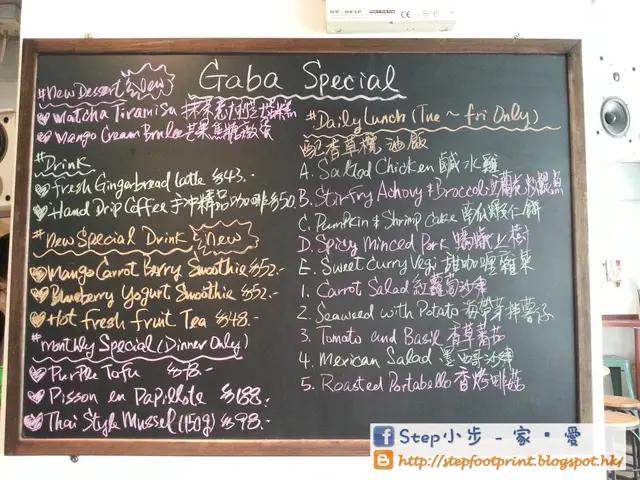 Gaba Special
#New Dessert New
Matcha Tiramisu 抹茶意大利芝士蛋糕
Mango Cream Brulee 芒果焦糖燉蛋
#Drink
Fresh Gingerbread Latte $43.-
Hand Drip Coffee 手沖精品咖啡 $50
#New Special Drink New
Mango Carrot Berry Smoothie $52.-
Blueberry Yogurt Smoothie $52.-
Hot Fresh Fruit Tea $48.-
#Monthly Special (Dinner Only)
Purple Tofu $78.-
Pisson en Papillote $188.-
Thai Style Mussel (150g) $98.-
#Daily Lunch (Tue ~ Fri Only)
配香草欖油飯
A. Salted Chicken 鹹水雞
B. Stir Fry Achovy & Broccoli
C. Pumpkin & Shrimp Cake 南瓜蝦仁餅
D. Spicy Minced Pork 螞蟻上樹
E. Sweet Curry Vegi 甜咖喱雜菜
1. Carrot Salad 紅蘿蔔沙律
2. Seaweed with Potato 海帶芽拌薯仔
3. Tomato and Basil 香草蕃茄
4. Mexican Salad 墨西哥沙律
5. Roasted Portabello 香烤啡菇
Step小步 _ 家 愛
http://stepfootprint.blogspot.hk/